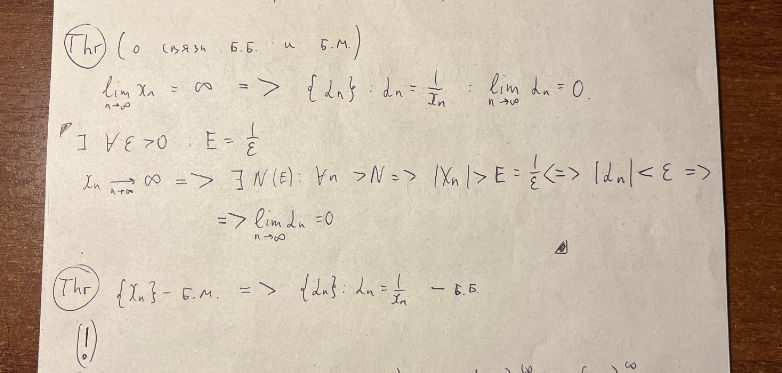 Thr (о связи Б.Б. и Б.М.)
lim xₙ = ∞ => {αₙ} : αₙ = 1/xₙ : lim αₙ = 0.
n→∞ n→∞
∃ ∀ ε > 0 : E = 1/ε
xₙ → ∞ => ∃ N(E): ∀n > N => |xₙ| > E = 1/ε <=> |αₙ| < ε =>
n→∞
=> lim αₙ = 0
n→∞
Thr {xₙ} – Б.М. => {αₙ}: αₙ = 1/xₙ – Б.Б.
(!)